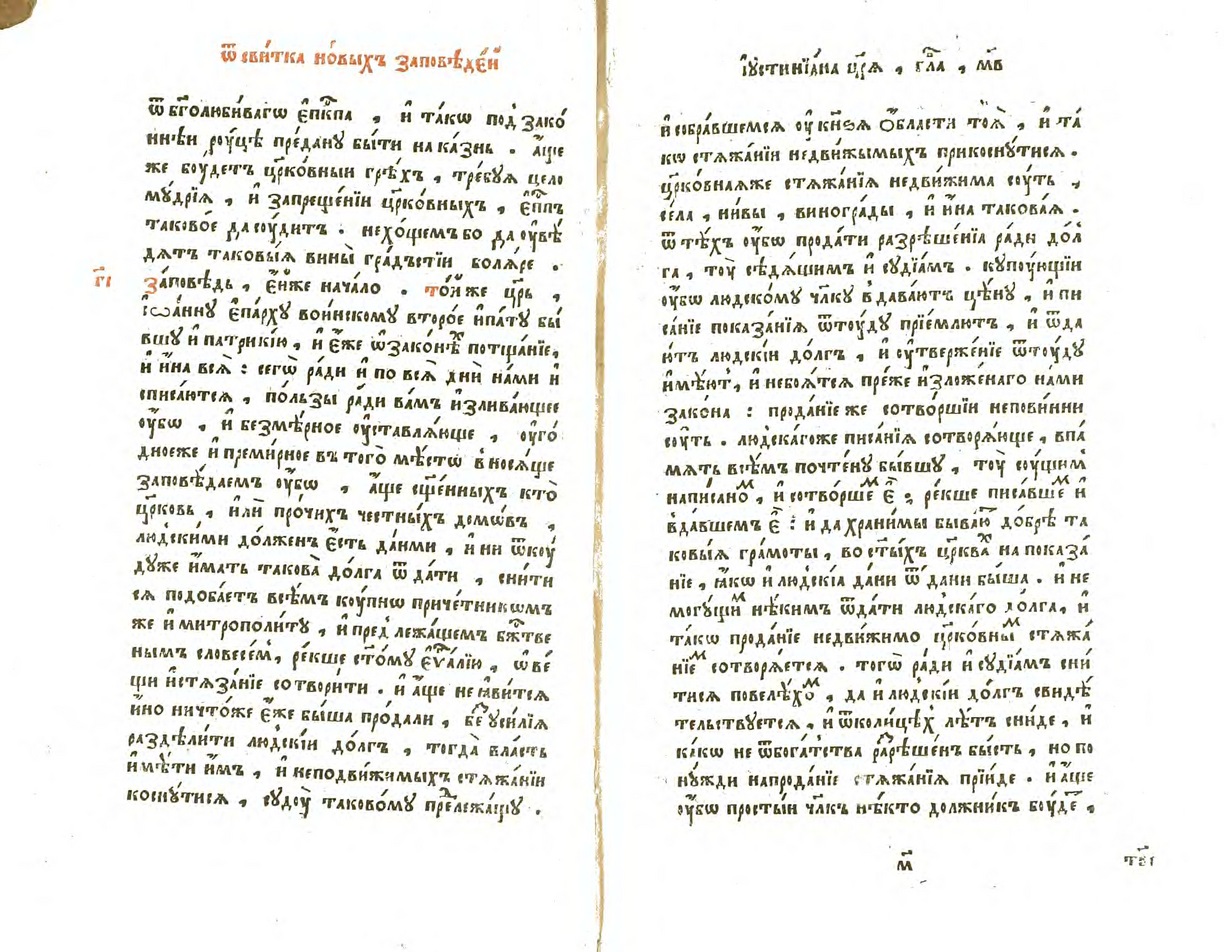 ѿ сви́тка но́выхъ заповѣде́й
ѿ бг҃олюби́ваго є҆пкⷭ҇па , и҆ та́кѡ под̾ зако́
ннѣи рꙋцѣ̀ пре́данꙋ бы́ти на ка́знь . а҆́ще
же бꙋ́детъ цр҃ко́вныи грѣ́хъ , тре́бꙋѧ цело
мꙋ́дрїѧ , и҆ запреще́нїи цр҃ко́вныхъ , є҆пⷭ҇пъ
таково́е да сꙋ́дитъ . не хо́щемъ бо да ᲂу҆вѣ́
дѧтъ таковы́ѧ вины̀ гра́дъстїи болѧ́ре .
г҃і
За́повѣдь , є҆́йже нача́ло . то́йже цр҃ь ,
і҆ѡа́ннꙋ є҆па́рхꙋ во́инскомꙋ второ́е и҆па́тꙋ бы́
вшꙋ и҆ патри́кїю , и҆ є҆́же ѡ҆ зако́нѣхъ потща́нїе,
и҆ и҆́на всѧ̀ : сегѡ̀ ра́ди и҆ по всѧ̀ днѝ на́ми и҆
списа́ютсѧ , по́льзы ра́ди ва́мъ и҆злива́ющее
ᲂу҆́бѡ , и҆ безмѣ́рное ᲂу҆ставлѧ́юще , ᲂу҆го́
дноеже и҆ преми́рное въ того̀ мѣ́стѡ вносѧ́ще
заповѣ́даемъ ᲂу҆́бѡ , а҆́ще сщ҃е́нныхъ кто̀
цр҃ковь , и҆лѝ про́чихъ че́стны́хъ домѡ́въ ,
лю́дскими до́лженъ є҆́сть да́нми , и҆ ни ѿкꙋ́
дꙋже и҆́мать такова̀ до́лга ѿда́ти , сни́ти
сѧ подоба́етъ всѣ́мъ кꙋ́пнѡ приче́тникѡмъ
же и҆ митрополи́тꙋ , и҆ пред̾лежа́щемъ бжⷭ҇тве
нымъ словесе́м , ре́кше ст҃о́мꙋ є҆ѵⷢ҇а́лїю , ѡ҆ ве́
щи и҆стѧза́нїе сотвори́ти . и҆ а҆́ще не ꙗ҆ви́тсѧ
и҆́но ничто́же є҆́же бы́ша про́дали , беⷥ ᲂу҆си́лїѧ
раздѣли́ти лю́дскїи до́лгъ , тогда̀ власть
и҆мѣ́ти и҆́мъ , и҆ неподви́жимыхъ стѧжа́нїи
коснꙋ́тисѧ , сꙋдꙋ̀ таково́мꙋ преⷣлежа́щꙋ .
і҆ꙋстинїа́на цр҃ѧ , гла҃ , м҃в
и҆ собра́вшемсѧ ᲂу҆ кнѧ́зѧ ѻ҆́бласти тоѧ̀ , и҆ та́
кѡ стѧжа́нїи недви́жымыхъ прикоснꙋ́тисѧ .
цр҃ко́внаѧже стѧжа́нїѧ недви́жима сꙋ́ть ,
се́ла , ни́вы , виногра́ды , и҆ и҆́на такова́ѧ .
ѿ тѣ́хъ ᲂу҆́бѡ прода́ти разрѣше́нїѧ ра́ди до́л
га , тꙋ̀ сѣдѧ́щимъ и҆ сꙋдїа́мъ . кꙋпꙋ́ющїи
ᲂу҆́бѡ людско́мꙋ чл҃кꙋ вдава́ютъ цѣ́нꙋ , и҆ пи
са́нїе показа́нїѧ ѿтꙋ́дꙋ прїе́млютъ , и҆ ѿда
и҆́тъ лю́дскїи до́лгъ , и҆ ᲂу҆твержє́нїе ѿтꙋ́дꙋ
и҆мꙋ́т , и҆ небоѧ́тсѧ пре́же и҆зложе́наго на́ми
зако́на : прода́нїе же сотво́ршїи непови́нни
сꙋ́ть . лю́дска́гоже писа́нїѧ сотворѧ́юще , впа́
мѧть всѣ́мъ почте́нꙋ бы́вшꙋ , тꙋ̀ сꙋ́щимъ
написаноⷨ , и҆ сотво́ршеⷨ є҆̀ : ре́кше писа́вшеⷨ и҆
вда́вшемъ є҆̀ : и҆ да храни́мы быва́ю до́брѣ та
ковы́ѧ гра́моты , во ст҃ы́хъ цр҃квахъ на показа́
нїе , ꙗ҆́кѡ и҆ лю́дскїа да́ни ѿда́ни бы́ша . и҆ не
могꙋ́щиⷨ нѣ́кимъ ѿда́ти людска́го до́лга, и҆
та́кѡ прода́нїе недви́жимо цр҃ко́вныⷨ стѧжа́
нїеⷨ сотворѧ́етсѧ . тогѡ̀ ра́ди и҆ сꙋдїа́мъ сни́
тисѧ повелѣ́хоⷨ , да и҆ лю́дскїи до́лгъ свидѣ́
тельствꙋетсѧ , и҆ ѿколи́цѣх лѣ́тъ сни́де , и҆
ка́кѡ не ѿбога́тства раⷥрѣше́н бы́сть , но по
нꙋ́жди напрода́нїе стѧжа́нїѧ прїи́де . и҆ а҆́ще
ᲂу҆́бѡ просты́и чл҃къ нѣ́кто должни́къ бꙋ́де ,
м҃